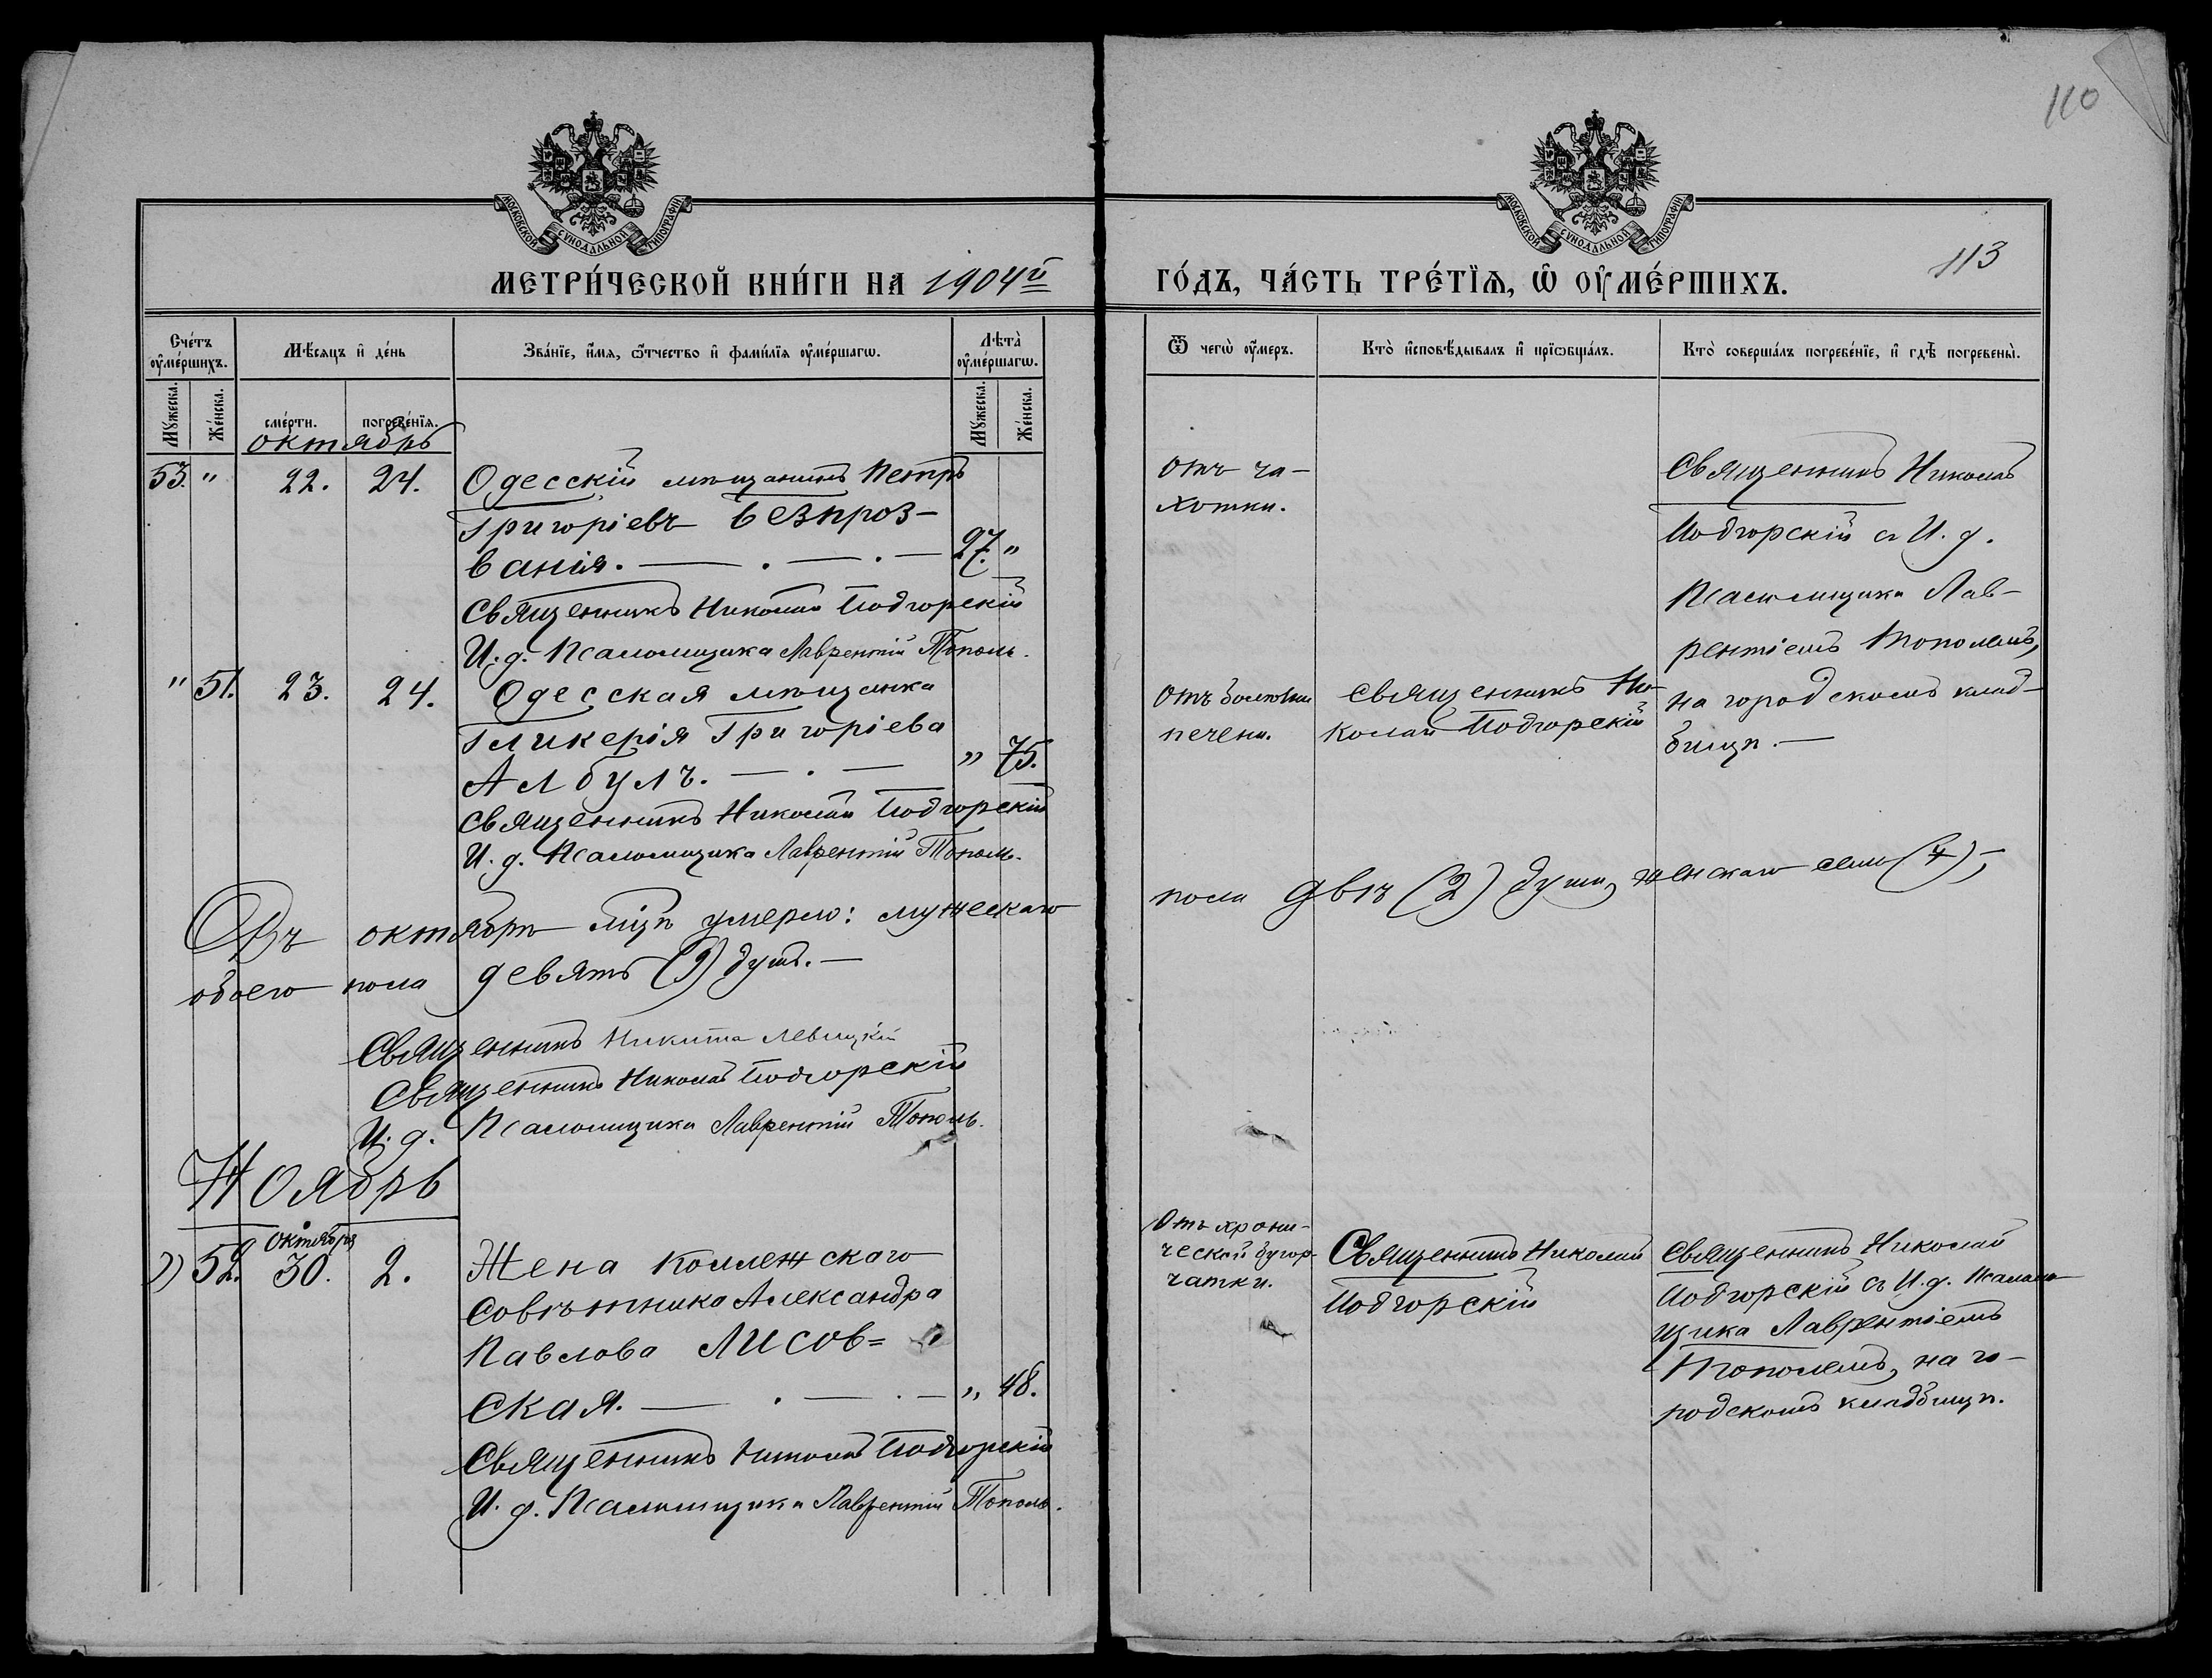 110
МОСКОВСКОЙ СѴНОДАЛЬНОЙ ТИПОГРАФІИ
МОСКОВСКОЙ СѴНОДАЛЬНОЙ ТИПОГРАФІИ
МЕТРИ́ЧЕСКОЙ КНИ́ГИ НА 1904й
ГО́ДЪ, ЧА́СТЬ ТРЕ́ТЇѦ, Ѡ҆ ОУ҆МЕ́РШИХЪ.
113
Сче́тъ оу҆ме́ршихъ.
Мѣ́сѧцъ и҆ де́нь
Зва́нїе, и҆́мѧ, ѻ҆́тчество и҆ фами́лїѧ оу҆ме́ршагѡ.
Лѣта̀ оу҆ме́ршагѡ.
Ѿ чегѡ̀ оу҆́меръ.
Кто̀ и҆сповѣ́дывалъ и҆ прїѡбща́лъ.
Кто̀ соверша́лъ погребе́нїе, и҆ гдѣ̀ погребены̀.
Мꙋ́жеска.
Же́нска.
сме́рти.
погребе́нїѧ.
Мꙋ́жеска.
Же́нска.
октябрь
53. " 22. 24. Одесскій мѣщанинъ Петръ
Григоріевъ Безпроз-
ванія. — . — . — 27. "
Священникъ Николай Подгорскій
И. д. Псаломщика Лаврентій Тополь.
Отъ ча-
хотки.
Священникъ Николай
Подгорскій съ И. д.
Псаломщика Лав-
рентіемъ Тополемъ,
на городскомъ клад-
бищѣ. —
" 51. 23. 24. Одесская мѣщанка
Гликерія Григоріева
Албулъ. — . — " 75.
Священникъ Николай Подгорскій
И. д. Псаломщика Лаврентій Тополь.
Отъ болѣзни
печени.
Священникъ Ни-
колай Подгорскій
Въ октябрѣ мцѣ умерло: мужескаго
пола двѣ (2) души, женскаго семь (7),
обоего пола девять (9) душъ. —
Священникъ Никита Левицкій
Священникъ Николай Подгорскій
И. д. Псаломщика Лаврентій Тополь.
Ноябрь
октября
" 52. 30. 2. Жена Коллежскаго
Совѣтника Александра
Павлова Лисов=
ская. — . — . — " 48.
Священникъ Николай Подгорскій
И. д. Псаломщика Лаврентій Тополь.
Отъ хрони-
ческой бугор-
чатки.
Священникъ Николай
Подгорскій
Священникъ Николай
Подгорскій съ И. д. Псалом-
щика Лаврентіемъ
Тополемъ, на го-
родскомъ кладбищѣ.